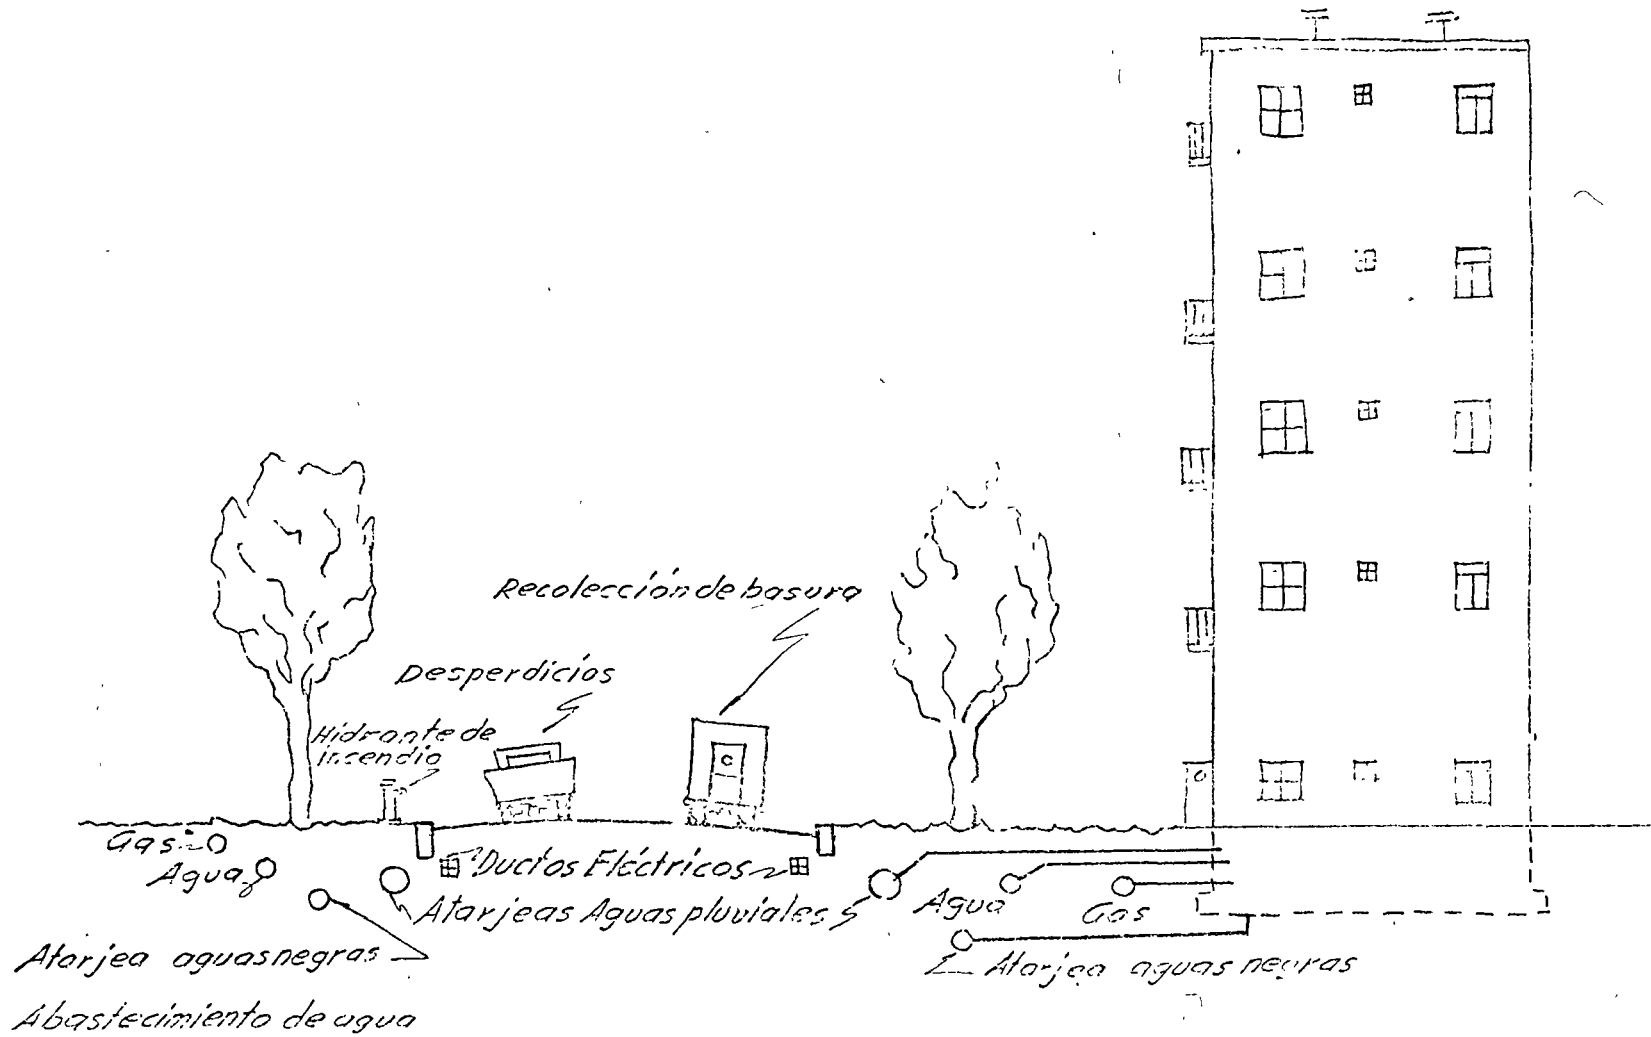 Recolección de basura
Desperdicios
Hidrante de
incendio
Gas
Ductos Eléctricos
Agua
Atarjeas Aguas pluviales
Agua
Gas
Atarjea aguas negras
Atarjea aguas negras
Abastecimiento de agua